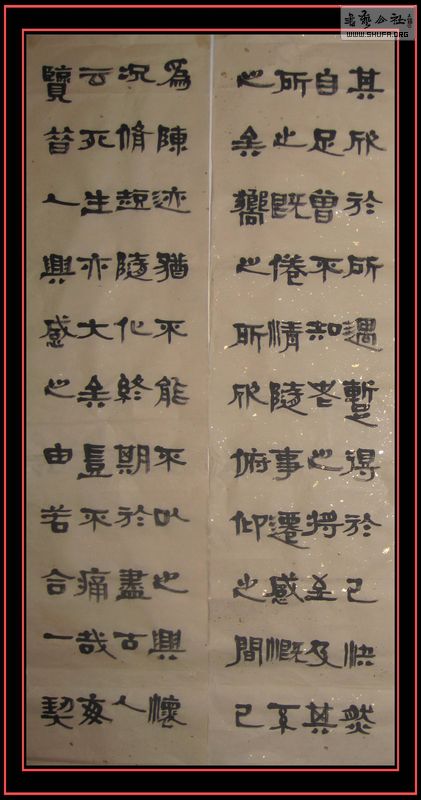 書藝公社
WWW.SHUFA.ORG
其欣於所遇暫得於己快然
自足曾不知老之將至及其
所之既倦情隨事遷感慨系
之矣嚮之所欣俯仰之間已
為陳迹猶不能不以之興懷
況脩短隨化終期於盡古人
云死生亦大矣豈不痛哉每
覽昔人興感之由若合一契